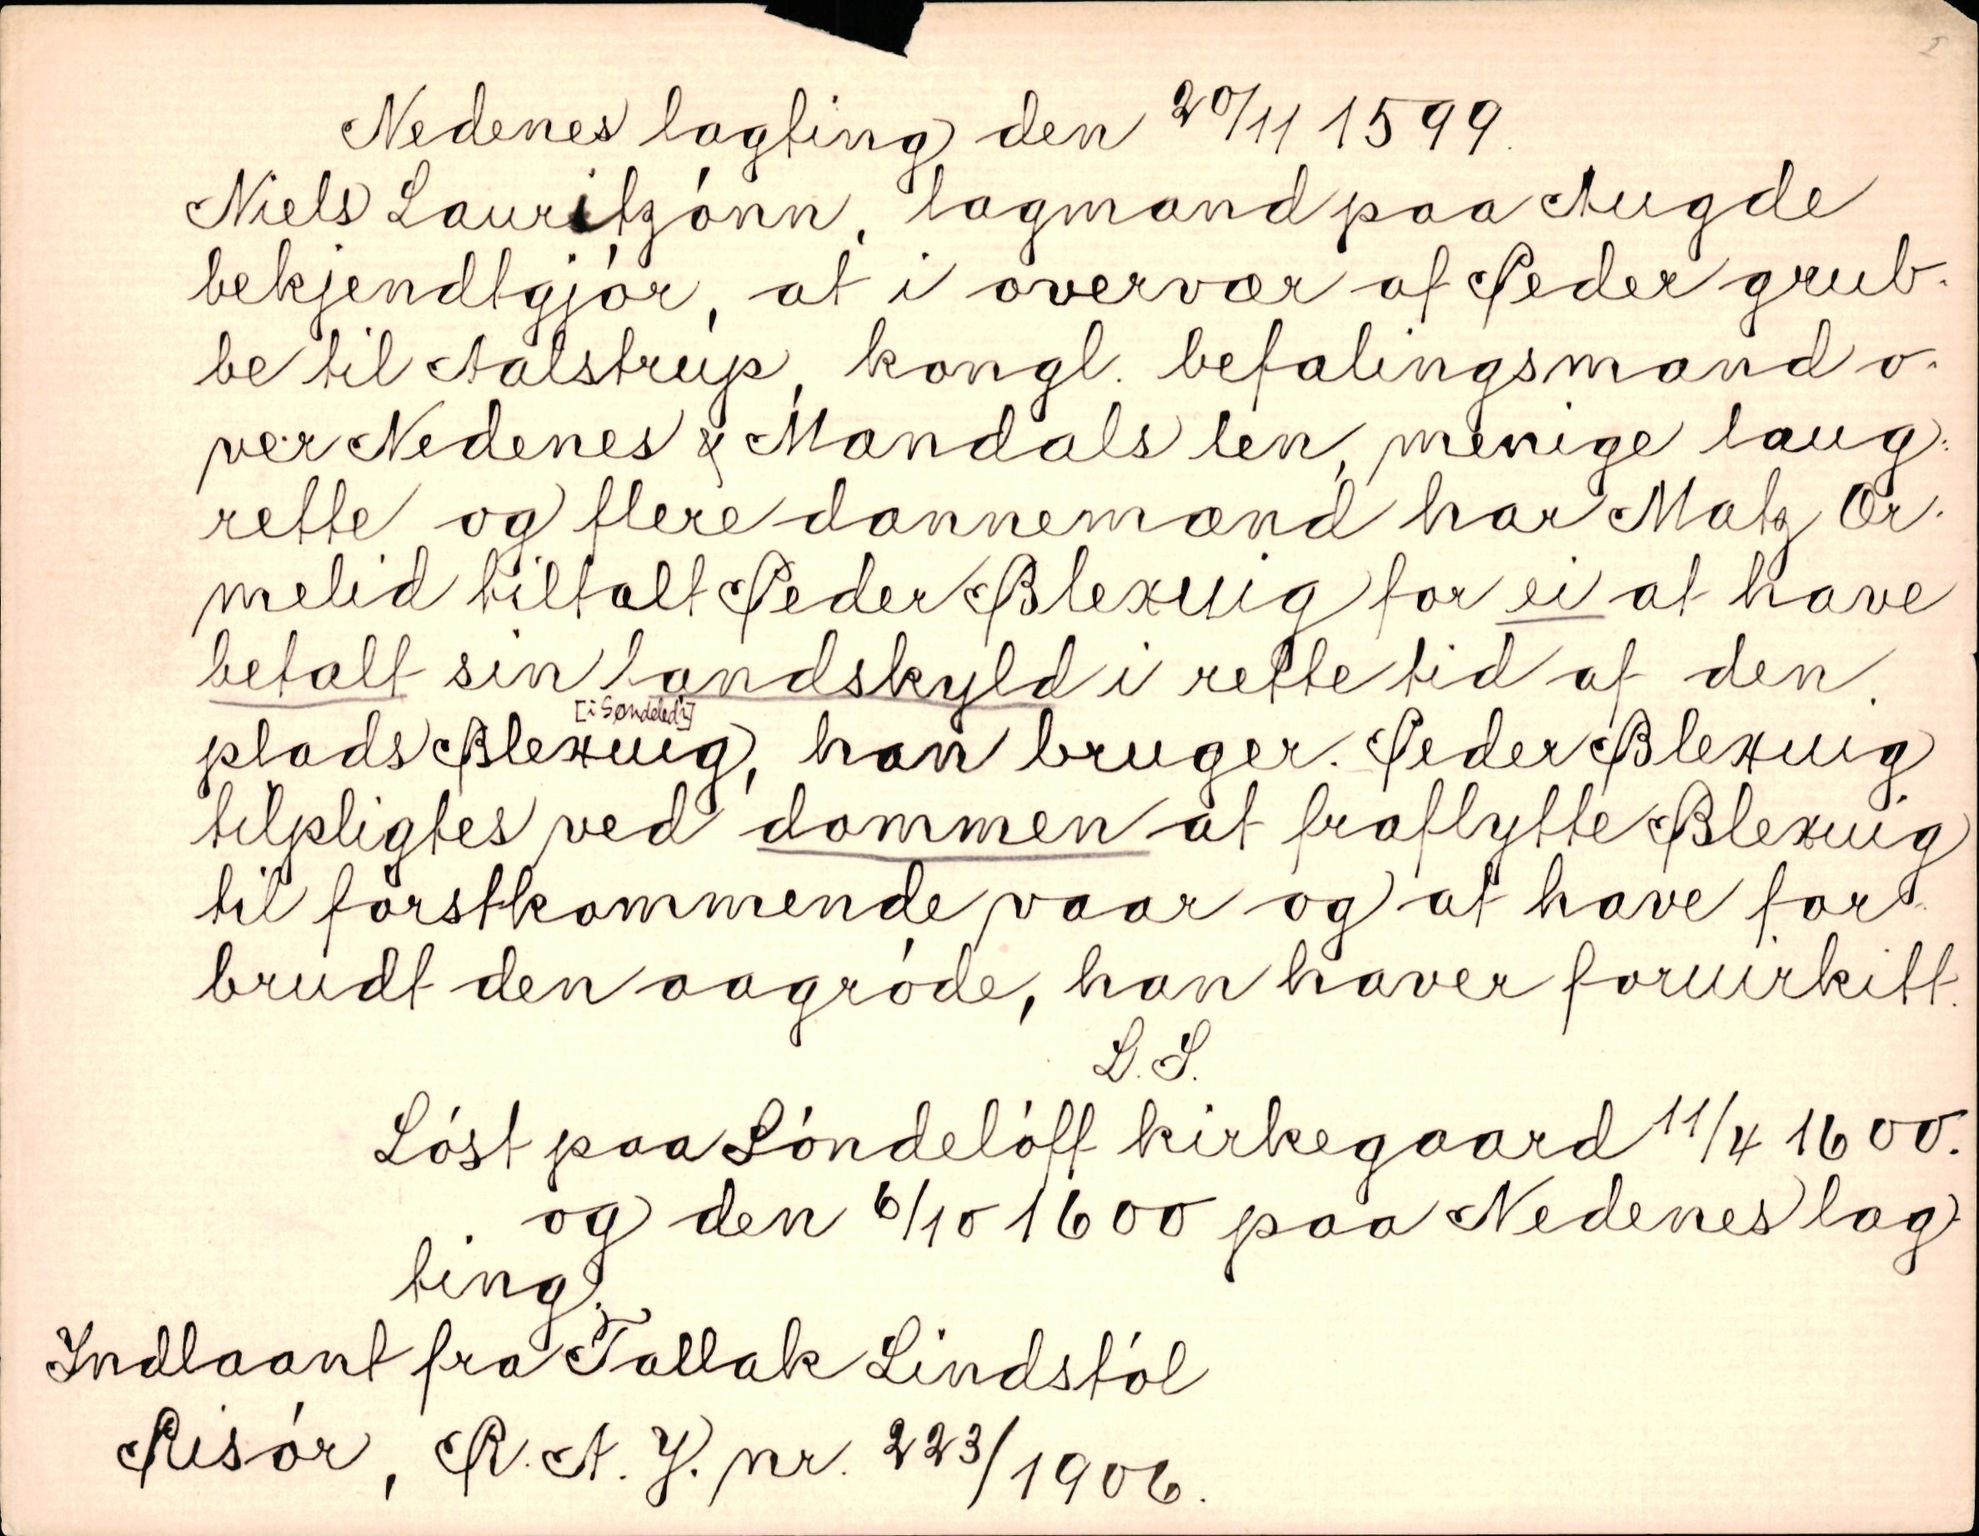 Nedenes lagting den 20/11 1599.
Niels Lauritzónn, lagmand paa Augde
bekjendtgjór, at i overvær af Peder grub-
be til Aalstrup, kongl. befalingsmand o-
ver Nedenes & Mandals len, menige laug-
rette og flere dannemænd har Matz Ør-
melid tiltalt Peder Blexuig for ei at have
betalt sin landskyld i rette tid af den
[i Søndeled]
plads Blexuig, han bruger. Peder Blexuig
tilpligtes ved dommen at fraflytte Blexuig
til fórstkommende vaar og at have for-
brudt den aagróde, han haver foruirkitt.
L.S.
Lóst paa Sóndelóff kirkegaard 11/4 1600.
og den 6/10 1600 paa Nedenes lag-
ting.
Indlaant fra Tallak Lindstól
Risór, R.A.J. nr. 223/1906.